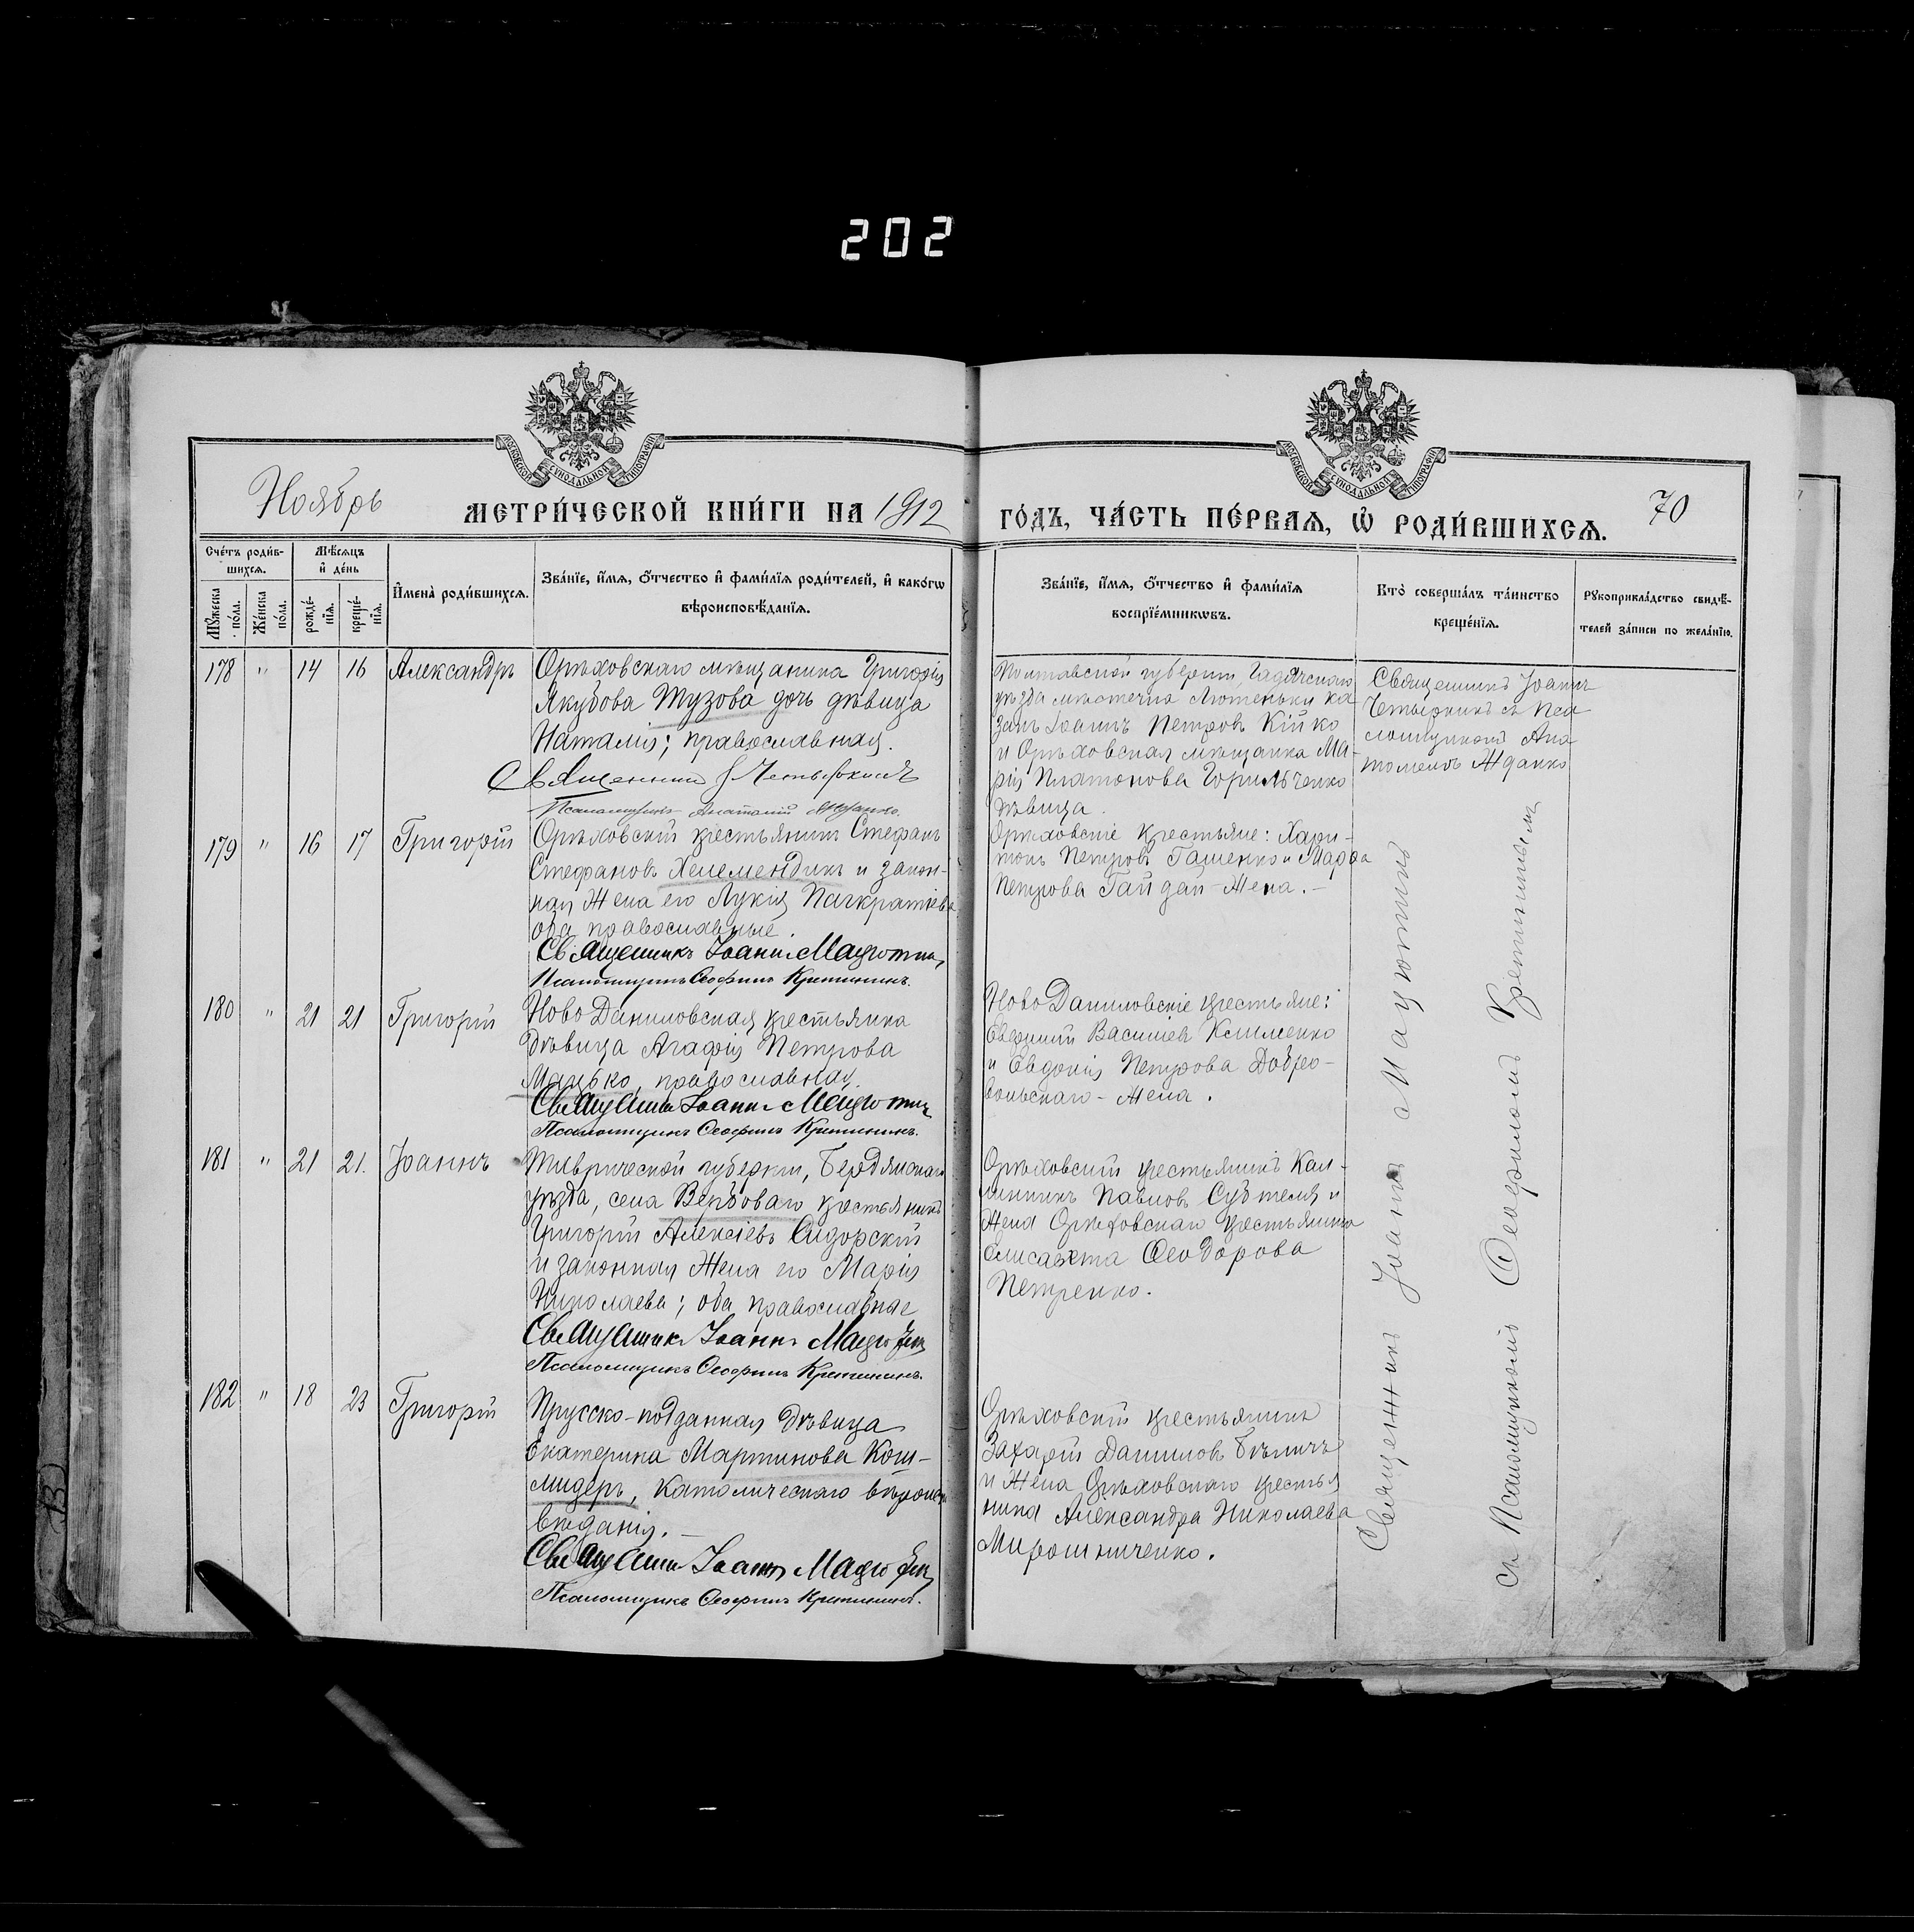 202
МОСКОВСКОЙ СѴНОДАЛЬНОЙ ТИПОГРАФІИ
МОСКОВСКОЙ СѴНОДАЛЬНОЙ ТИПОГРАФІИ
Ноябрь
МЕТРИ́ЧЕСКОЙ КНИ́ГИ НА 1912
ГО́ДЪ, ЧА́СТЬ ПЕ́РВАѦ, Ѽ РОДИ́ВШИХСѦ.
70
Сче́тъ роди́в-
шихсѧ.
Мꙋ́жеска по́ла.
Же́нска по́ла.
Мѣ́сѧцъ
и҆ де́нь
рожде́-
нїѧ.
креще́-
нїѧ.
И҆мена̀ роди́вшихсѧ.
Зва́нїе, и҆́мѧ, ѻ҆́тчество и҆ фами́лїѧ роди́телей, и҆ како́гѡ
вѣроисповѣ́данїѧ.
Зва́нїе, и҆́мѧ, ѻ҆́тчество и҆ фами́лїѧ
воспрїе́мникѡвъ.
Кто̀ соверша́лъ та́инство
креще́нїѧ.
Рꙋкоприкла́дство свидѣ́-
телей за́писи по жела́нїю.
178 " 14 16 Александръ
Орѣховскаго мѣщанина Григорія
Якубова Тузова дочь дѣвица
Наталія; православная.
Священникъ І Четыркинъ
Псаломщикъ Анатолій Жданко.
Полтавской губерніи, Гадячскаго
уѣзда мѣстечка Лютеньки ка
закъ Іоаннъ Петровъ Кійко
и Орѣховская мѣщанка Ма-
рія Платонова
дѣвица.
Священникъ Іоаннъ
Четыркинъ съ Пса
ломщикомъ Ана
толіемъ Жданко
179 " 16 17 Григорій
Орѣховскій крестьянинъ Стефанъ
Стефановъ Хелемендикъ и закон-
ная жена его Лукія Панкратіева
оба православные.
Священникъ Іоаннъ Мацютинъ
Псаломщикъ Ѳеофилъ Кретининъ.
Орѣховскіе крестьяне: Хари-
тонъ Петровъ Гашенко и Марфа
Петрова Гайдай - жена. -
180 " 21 21 Григорій
Ново Даниловская крестьянка
дѣвица Агафія Петрова
Мацько, православная.
Священникъ Іоаннъ Мацютинъ
Псаломщикъ Ѳеофилъ Кретининъ.
Ново Даниловскіе крестьяне:
Евфимій Васильевъ Клименко
и Евдокія Петрова Добро-
вольскаго - жена.
181 " 21 21. Іоаннъ
Таврической губерніи, Бердянскаго
уѣзда, села Вербоваго крестьянинъ
Григорій Алексіевъ Сидорскій
и законная жена его Марія
Николаева; оба православные
Священникъ Іоаннъ Мацютинъ
Псаломщикъ Ѳеофилъ Кретининъ.
Орѣховскій крестьянинъ Кал-
линикъ Павловъ Субтеля и
жена Орѣховскаго крестьянина
Елисавета Ѳеодорова
Петренко.
182 " 18 23 Григорій
Прусско-подданная дѣвица
Екатерина Мартинова Кош-
мидеръ, католическаго вѣроиспо
вѣданія. -
Священникъ Іоаннъ Мацютинъ
Псаломщикъ Ѳеофилъ Кретининъ.
Орѣховскій крестьянинъ
Захарій Даниловъ Бѣличъ
и жена Орѣховскаго крестья
нина Александра Николаева
Мирошниченко.
Священникъ Іоаннъ Мацютинъ
съ Псаломщикомъ Ѳеофиломъ Кретининымъ
13